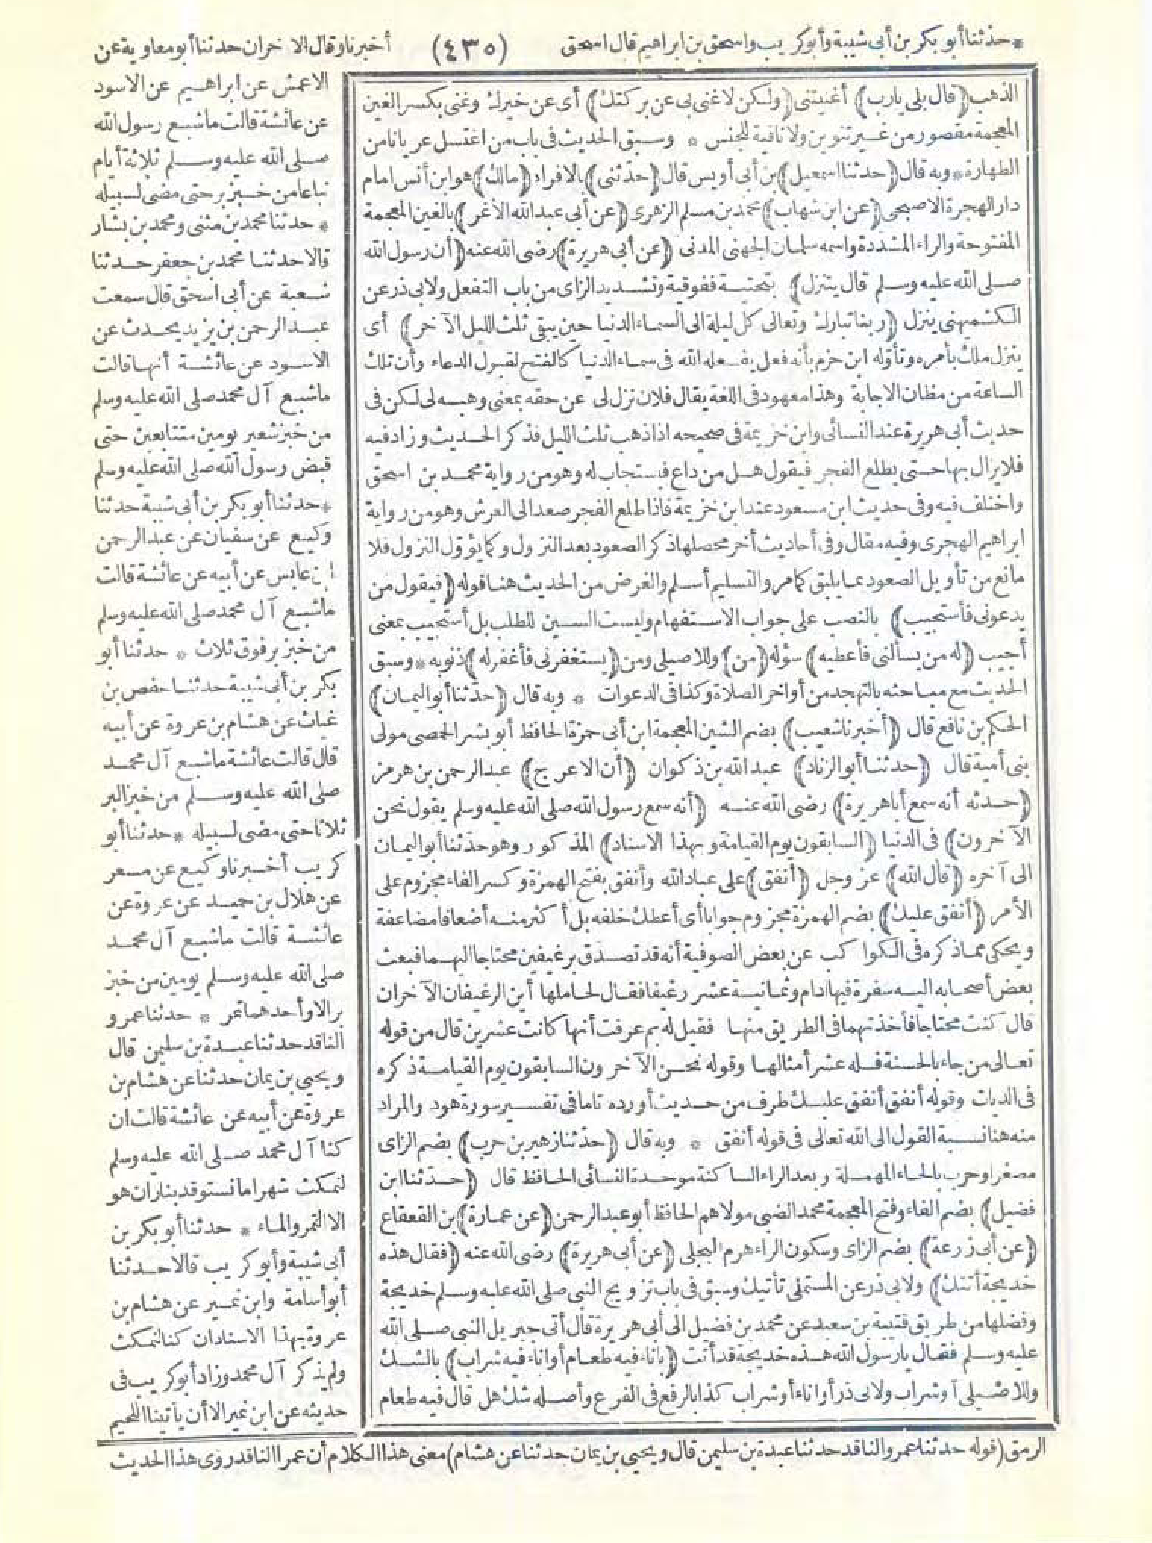 * حدثنا أبو بكر بن أبي شيبة وأبو كريب واسحق بن ابراهيم قال اسحق (٤٣٥) أخبرنا وقال الآخران حدثنا أبو معاوية عن
الذهب (قال بلى يارب) أغنيتني (ولكن لا غنى بي عن بركتك) أى عن خيرك وغنى بكسر الغين
المعجمة مقصور من غير تنوين ولا نافية للجنس * وسبق الحديث في باب من اغتسل عريانا من
الطهارة * وبه قال (حدثنا اسمعيل) بن أبي أويس قال (حدثني) بالافراد (مالك) هو ابن أنس امام
دار الهجرة الاصبحى (عن ابن شهاب) محمد بن مسلم الزهرى (عن أبي عبد الله الأغر) بالغين المعجمة
المفتوحة والراء المشددة واسمه سلمان الجهني المدنى (عن أبي هريرة) رضى الله عنه (أن رسول الله
صلى الله عليه وسلم قال يتنزل) بتحتية ففوقية وتشديد الزاى من باب التفعل ولابى ذر عن
الكشميهنى ينزل (ربنا تبارك وتعالى كل ليلة الى السماء الدنيا حين يبقى ثلث الليل الآخر) أى
ينزل ملك بأمره وتأوله ابن حزم بأنه فعل يفعله الله فى سماء الدنيا كالفتح لقبول الدعاء وأن تلك
الساعة من مظان الاجابة وهذا معهود فى اللغة يقال فلان نزل لى عن حقه بمعنى وهبه لى لكن فى
حديث أبى هريرة عند النسائى وابن خزيمة فى صحيحه اذا ذهب ثلث الليل فذكر الحديث وزاد فيه
فلا يزال بها حتى يطلع الفجر فيقول هل من داع فيستجاب له وهو من رواية محمد بن اسحق
واختلف فيه وفى حديث ابن مسعود عند ابن خزيمة فاذا طلع الفجر صعد الى العرش وهو من رواية
ابراهيم الهجرى وفيه مقال وفى أحاديث أخر محصلها ذكر الصعود بعد النزول وكما يؤول النزول فلا
مانع من تأويل الصعود بما يليق كما مر والتسليم أسلم والغرض من الحديث هنا قوله (فيقول من
يدعونى فأستجيب) بالنصب على جواب الاستفهام وليست السين للطلب بل أستجيب بمعنى
أجيب (له من يسألنى فأعطيه) سؤله (من) وللاصيلى ومن (يستغفرنى فأغفر له) ذنوبه * وسبق
الحديث مع مباحثه بالتهجد من أواخر الصلاة وكذا فى الدعوات * وبه قال (حدثنا أبو اليمان)
الحكم بن نافع قال (أخبرنا شعيب) بضم الشين المعجمة ابن أبى حمزة الحافظ أبو بشر الحمصى مولى
بنى أمية قال (حدثنا أبو الزناد) عبد الله بن ذكوان (أن الاعرج) عبد الرحمن بن هرمز
(حدثه أنه سمع أبا هريرة) رضى الله عنه (أنه سمع رسول الله صلى الله عليه وسلم يقول نحن
الآخرون) فى الدنيا (السابقون يوم القيامة وبهذا الاسناد) المذكور وهو حدثنا أبو اليمان
الى آخره (قال الله) عز وجل (أنفق) على عباد الله وأنفق بفتح الهمزة وكسر الفاء مجزوم على
الأمر (أنفق عليك) بضم الهمزة مجزوم جوابا أى أعطك خلفه بل أكثر منه أضعافا مضاعفة
ويحكى مما ذكره فى الكواكب عن بعض الصوفية أنه قد تصدق برغيفين محتاجا اليهما فبعث
بعض أصحابه اليه سفرة فيها ادام وثمانية عشر رغيفا فقال لحاملها أين الرغيفان الآخران
قال كنت محتاجا فأخذتهما فى الطريق منها فقيل له بم عرفت أنها كانت عشرين قال من قوله
تعالى من جاء بالحسنة فله عشر أمثالها وقوله نحن الآخرون السابقون يوم القيامة ذكره
فى الديات وقوله أنفق أنفق عليك طرف من حديث أورده تاما فى تفسير سورة هود والمراد
منه هنا نسبة القول الى الله تعالى فى قوله أنفق * وبه قال (حدثنا زهير بن حرب) بضم الزاى
مصغرا وحرب بالحاء المهملة وبعد الراء الساكنة موحدة النسائى الحافظ قال (حدثنا ابن
فضيل) بضم الفاء وفتح المعجمة محمد الضبى مولاهم الحافظ أبو عبد الرحمن (عن عمارة) بن القعقاع
(عن أبى زرعة) بضم الزاى وسكون الراء هرم البجلى (عن أبى هريرة) رضى الله عنه (فقال هذه
خديجة أتتك) ولابى ذر عن المستملى تأتيك وسبق فى باب تزويج النبى صلى الله عليه وسلم خديجة
وفضلها من طريق قتيبة بن سعيد عن محمد بن فضيل الى أبى هريرة قال أتى جبريل النبى صلى الله
عليه وسلم فقال يا رسول الله هذه خديجة قد أتت (باناء فيه طعام أو اناء فيه شراب) بالشك
وللاصيلى أو شراب ولابى ذر أو اناء أو شراب كذا بالرفع فى الفرع وأصله شك هل قال فيه طعام
الاعمش عن ابراهيم عن الاسود
عن عائشة قالت ما شبع رسول الله
صلى الله عليه وسلم ثلاثة أيام
تباعا من خبز بر حتى مضى لسبيله
* حدثنا محمد بن مثنى ومحمد بن بشار
قالا حدثنا محمد بن جعفر حدثنا
شعبة عن أبى اسحق قال سمعت
عبد الرحمن بن يزيد يحدث عن
الاسود عن عائشة أنها قالت
ما شبع آل محمد صلى الله عليه وسلم
من خبز شعير يومين متتابعين حتى
قبض رسول الله صلى الله عليه وسلم
* حدثنا أبو بكر بن أبى شيبة حدثنا
وكيع عن سفيان عن عبد الرحمن
ابن عابس عن أبيه عن عائشة قالت
ما شبع آل محمد صلى الله عليه وسلم
من خبز بر فوق ثلاث * حدثنا أبو
بكر بن أبى شيبة حدثنا حفص بن
غياث عن هشام بن عروة عن أبيه
قال قالت عائشة ما شبع آل محمد
صلى الله عليه وسلم من خبز البر
ثلاثا حتى مضى لسبيله * حدثنا أبو
كريب أخبرنا وكيع عن مسعر
عن هلال بن حميد عن عروة عن
عائشة قالت ما شبع آل محمد
صلى الله عليه وسلم يومين من خبز
بر الا وأحدهما تمر * حدثنا عمرو
الناقد حدثنا عبدة بن سليمن قال
ويحيى بن يمان حدثنا عن هشام بن
عروة عن أبيه عن عائشة قالت ان
كنا آل محمد صلى الله عليه وسلم
لنمكث شهرا ما نستوقد بنار ان هو
الا التمر والماء * حدثنا أبو بكر بن
أبى شيبة وأبو كريب قالا حدثنا
أبو أسامة وابن نمير عن هشام بن
عروة بهذا الاسناد ان كنا لنمكث
ولم يذكر آل محمد وزاد أبو كريب فى
حديثه عن ابن نمير الا أن يأتينا اللحيم
الرمق (قوله حدثنا عمرو الناقد حدثنا عبدة بن سليمن قال ويحيى بن يمان حدثنا عن هشام) معنى هذا الكلام أن عمرا الناقد روى هذا الحديث